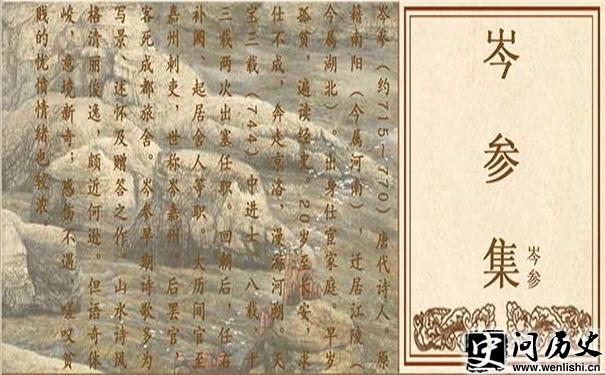 岑参（约715—770）唐代诗人，原
籍南阳（今属河南），迁居江陵（
今属湖北）。出身仕宦家庭。早岁
孤贫，遍读经史。20岁至长安，求
仕不成，奔走京洛，漫游河朔。天
宝三载（744）中进士。八载、十
三载两次出塞任职。回朝后，任右
补阙、起居舍人等职。大历间官至
嘉州刺史，世称岑嘉州。后罢官，
客死成都旅舍。岑参早期诗歌多为
写景、述怀及赠答之作。山水诗风
格清丽俊逸，颇近何逊。但语奇体
峻，意境新奇；感伤不遇，嗟叹贫
贱的忧愤情绪也较浓
岑参集
岑参
史问历史
www.wenlishi.cn